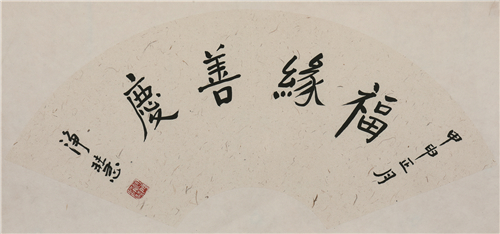 甲申正月
福緣善慶
淨慧